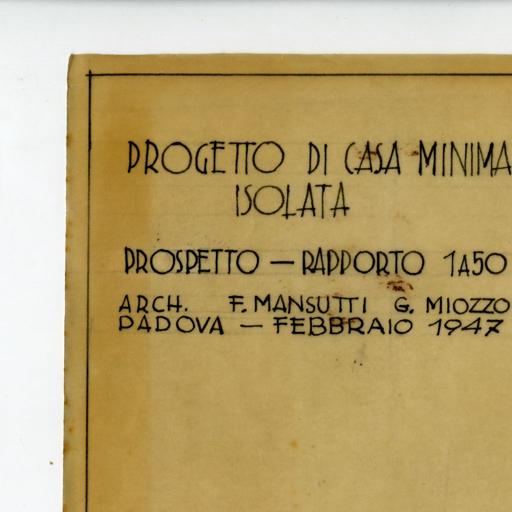 PROGETTO DI CASA MINIMA
ISOLATA
PROSPETTO — RAPPORTO 1A50
ARCH. F. MANSUTTI G. MIOZZO
PADOVA — FEBBRAIO 1947